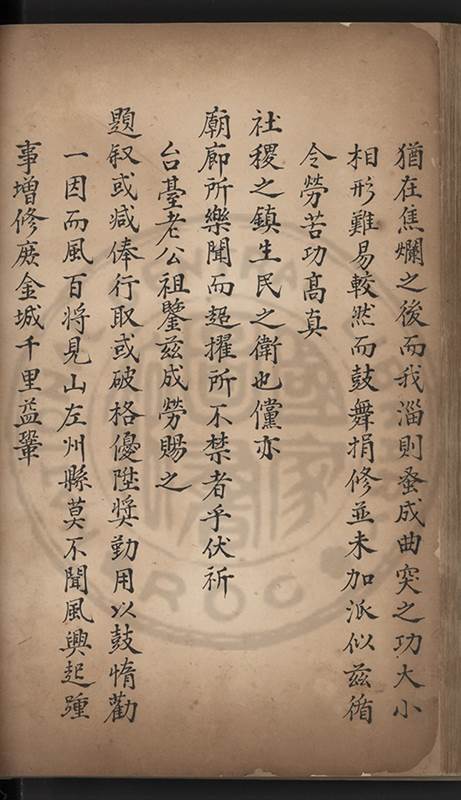 猶在焦爛之後而我淄則蚤成曲突之功大小
相形難易較然而鼓舞捐修並未加派似茲循
令勞苦功高真
社稷之鎮生民之衛也儻亦
廟廊所樂聞而超擢所不禁者乎伏祈
台臺老公祖鑒茲成勞賜之
題敘或減俸行取或破格優陞獎勤用以鼓惰勸
一因而風百將見山左州縣莫不聞風興起踵
事增修庶金城千里益鞏